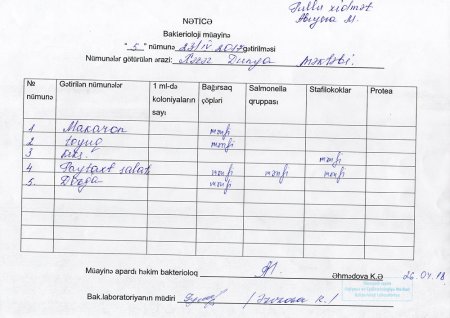 Pullu xidmət
NƏTİCƏ
Bakterioloji müayinə
"5" nümunə 23/IV 2018 gətirilməsi
Nümunələr götürülən ərazi: Dünya məktəbi.
№ nümunə Gətirilən nümunələr 1 ml-də koloniyaların sayı Bağırsaq çöpləri Salmonella qruppası Stafilokoklar Protea
1 Makaron mənfi
2 toyuq mənfi
3 keks. mənfi
4 Paytaxt salat mənfi mənfi mənfi
5. Dovğa mənfi
Müayinə apardı həkim bakterioloq Əhmədova K.Ə 26.04.18
Bak.laboratoriyanın müdiri